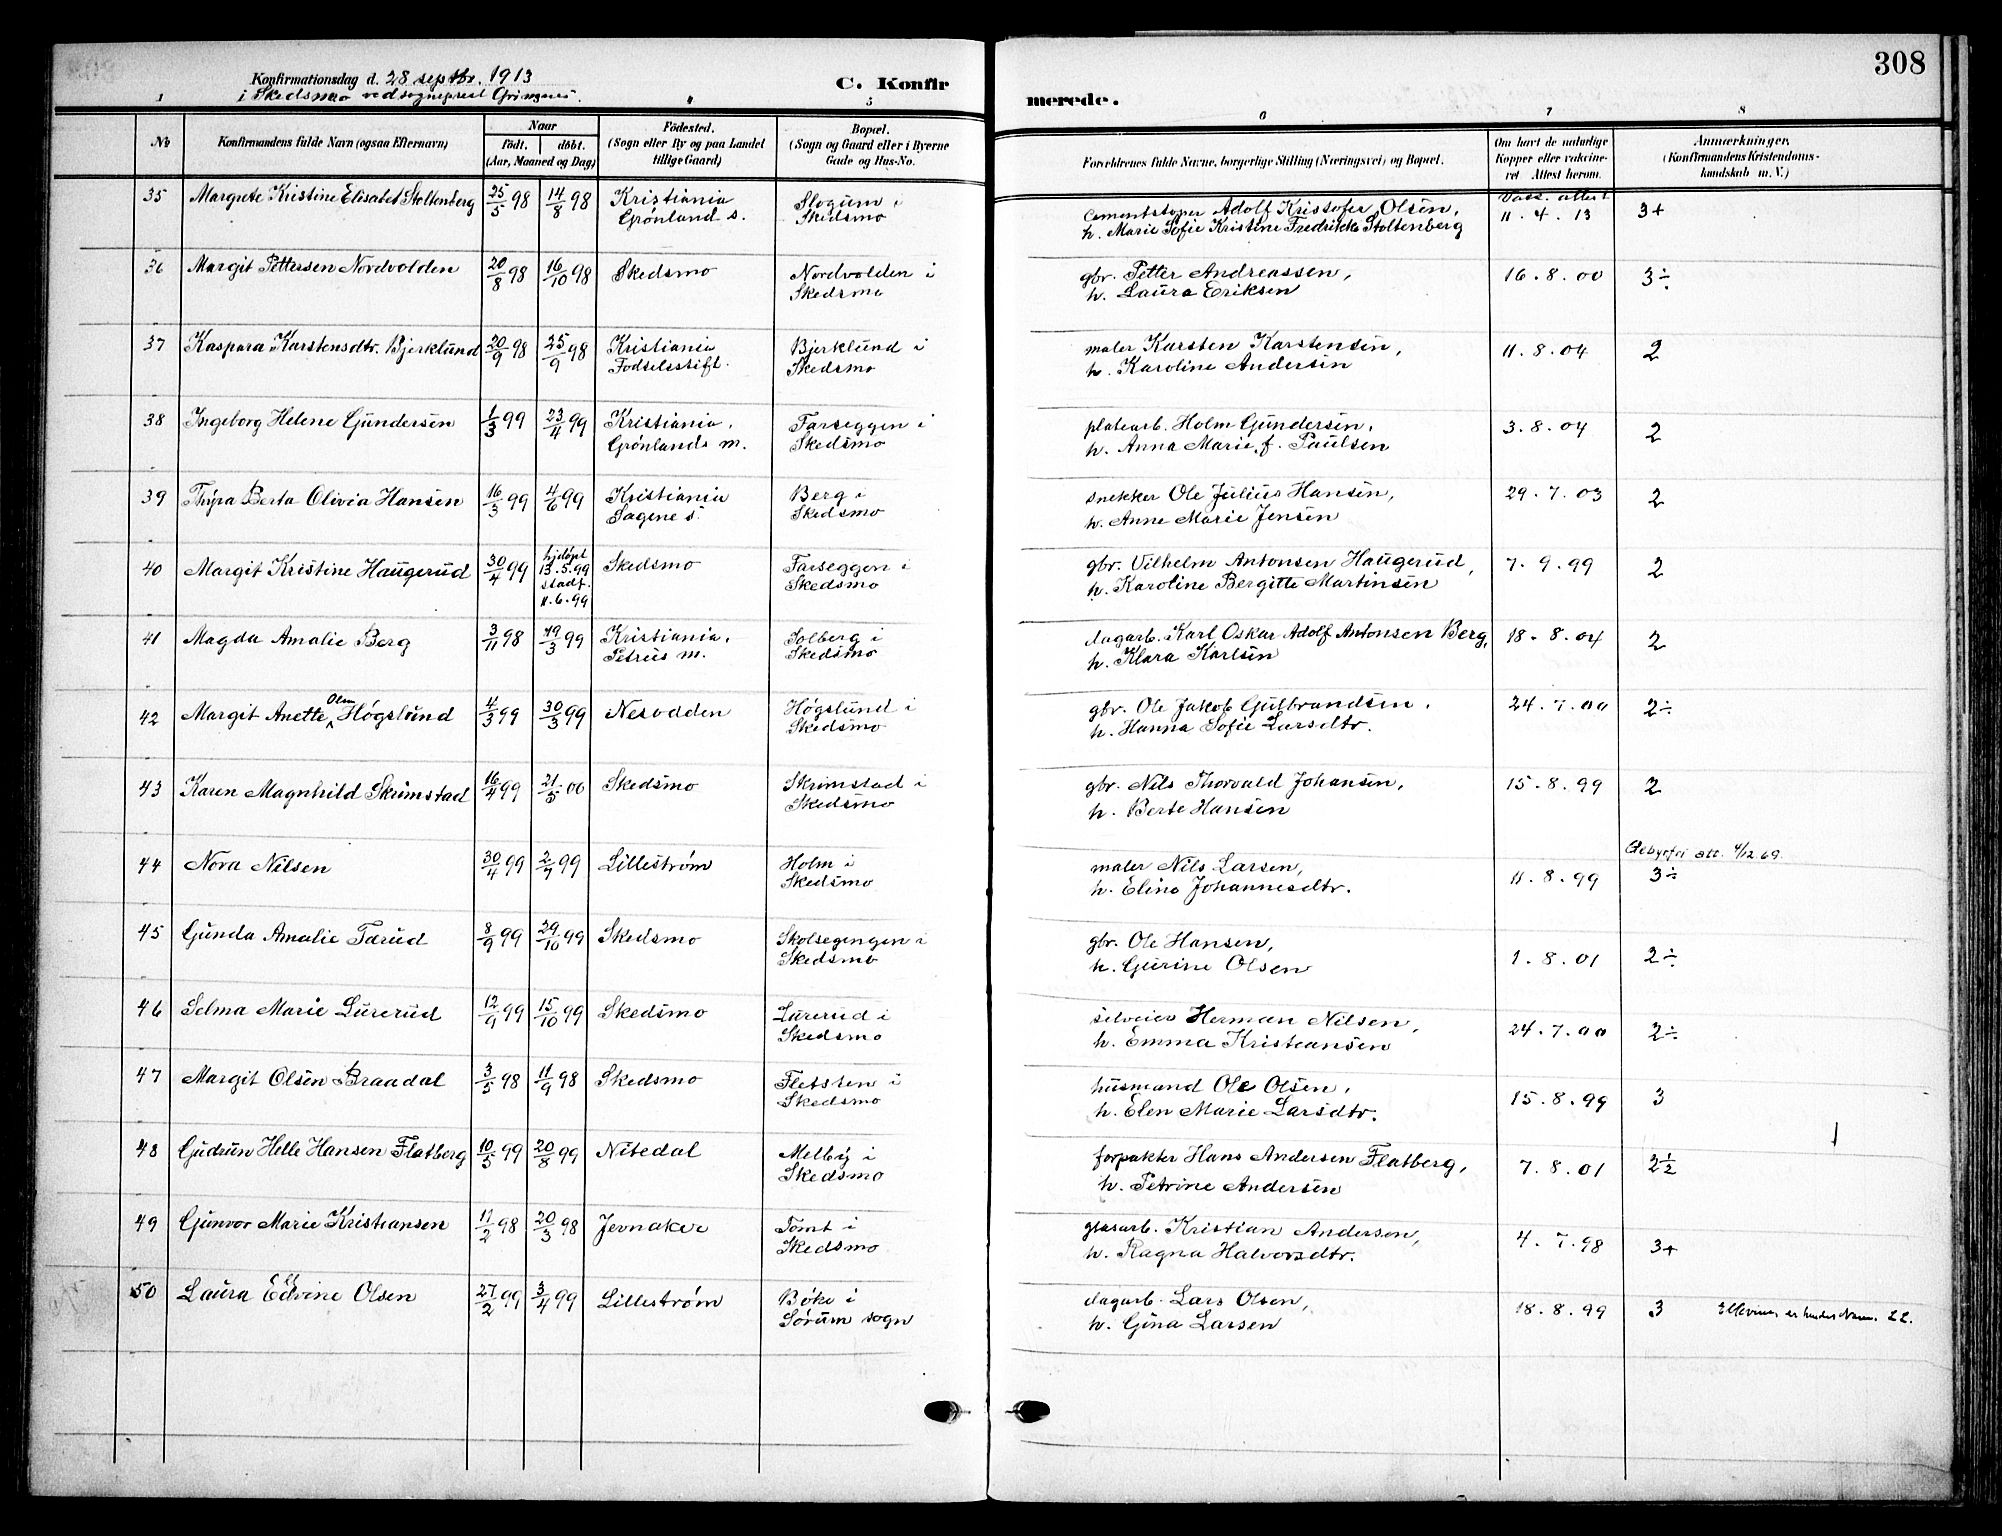 308
Konfirmationsdag d. 28 septbr. 1913
i Skedsmo ved sogneprest Grimnes.
C. Konfir
merede.
1 4 5 6 7 8
No Konfirmandens fulde Navn (ogsaa Efternavn) Naar Födested. Bopæl. Forældrenes fulde Navne, borgerlige Stilling (Næringsvei) og Bopæl. Om havt de naturlige Anmærkninger.
født. døbt. (Sogn eller By og paa Landet (Sogn og Gaard eller i Byerne Kopper eller vaccine- (Konfirmandens Kristendoms-
(Aar, Maaned og Dag) tillige Gaard) Gade og Hus-No. ret. Attest herom. kundskab m. V.)
35 Margrete Kristine Elisabet Stoltenberg 25/5 98 14/8 98 Kristiania Slogum i cementstøper Adolf Kristofer Olsen, Vacc. attest 3+
Grønland s. Skedsmo h. Marie Sofie Kristine Fredrikke Stoltenberg 11.4.13
36 Margit Pettersen Nordvolden 20/8 98 16/10 98 Skedsmo Nordvolden i gbr. Petter Andreassen, 16.8.00 3÷
Skedsmo h. Laura Eriksen
37 Kaspara Karstensdtr. Bjerklund 20/9 98 25/9 98 Kristiania Bjerklund i maler Karsten Karstensen, 11.8.04 2
Fødselsstift. Skedsmo h. Karoline Andersen
38 Ingeborg Helene Gundersen 1/3 99 23/4 99 Kristiania, Farseggen i platearb. Holm Gundersen, 3.8.04 2
Grønlands m. Skedsmo h. Anna Marie f. Paulsen
39 Thyra Berta Olivia Hansen 16/3 99 4/6 99 Kristiania Berg i snekker Ole Julius Hansen, 29.7.03 2
Sagene s. Skedsmo h. Anne Marie Jensen
40 Margit Kristine Haugerud 30/4 99 hjdøpt Skedsmo Farseggen i gbr. Vilhelm Antonsen Haugerud, 7.9.99 2
13.5.99 Skedsmo h. Karoline Bergitte Martinsen
stadf.
11.6.99
41 Magda Amalie Berg 3/11 98 19/3 99 Kristiania, Solberg i dagarb. Karl Oskar Adolf Antonsen Berg, 18.8.04 2
Petrus m. Skedsmo h. Klara Karlsen
42 Margit Anette Olm Høgslund 4/3 99 30/3 99 Nesodden Høgslund i gbr. Ole Jakob Gulbrandsen, 24.7.00 2÷
Skedsmo h. Hanna Sofie Larsdtr.
43 Karen Magnhild Skrimstad 16/4 99 21/5 00 Skedsmo Skrimstad i gbr. Nils Thorvald Johansen, 15.8.99 2
Skedsmo h. Berte Hansen
44 Nora Nilsen 30/4 99 2/7 99 Lillestrøm Holm i maler Nils Larsen, 11.8.99 Gebyrfri att. 4/12 69. 3÷
Skedsmo h. Eline Johannesdtr.
45 Gunda Amalie Tærud 8/9 99 29/10 99 Skedsmo Skolsegingen i gbr. Ole Hansen, 1.8.01 2÷
Skedsmo h. Gurine Olsen
46 Selma Marie Lurerud 12/9 99 15/10 99 Skedsmo Lurerud i selveier Herman Nilsen, 24.7.00 2÷
Skedsmo h. Emma Kristiansen
47 Margit Olsen Braadal 3/5 98 11/9 98 Skedsmo Fletsten i husmand Ole Olsen, 15.8.99 3
Skedsmo h. Elen Marie Larsdtr.
48 Gudrun Helle Hansen Flatberg 10/5 99 20/8 99 Nitedal Melby i forpakter Hans Andersen Flatberg, 7.8.01 2½
Skedsmo h. Petrine Andersen
49 Gunvor Marie Kristiansen 11/2 98 20/3 98 Jevnaker Tomt i glasarb. Kristian Andersen, 4.7.98 3+
Skedsmo h. Ragna Halvorsdtr.
50 Laura Edvine Olsen 27/2 99 3/4 99 Lillestrøm Bøke i dagarb. Lars Olsen, 18.8.99 3 Ellevine er hendes Navn. LL.
Sørum sogn h. Gina Larsen